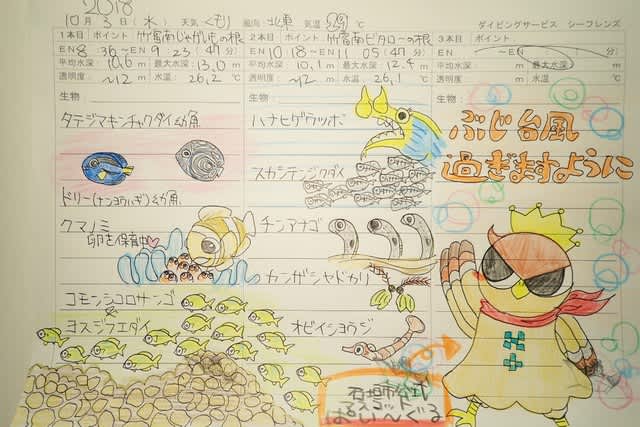 2018
10月3日(水) 天気 くもり 風向 北東 気温 29℃ ダイビングサービス シーフレンズ
1本目 ポイント: 竹富南じゃがいもの根
EN 8:36~EN 9:23(47分)
平均水深: 10,6m 最大水深: 13,0m
透明度: ~12m 水温: 26,2℃
生物:
タテジマキンチャクダイ幼魚
ドリー(ナンヨウハギ)幼魚
クマノミ
卵を保育中
コモンシコロサンゴ
&
ヨスジフエダイ
2本目 ポイント: 竹富南ビタローの根
EN 10:18~EN 11:05(47分)
平均水深: 10,1m 最大水深: 12,4m
透明度: ~12m 水温: 26,1℃
生物:
ハナヒゲウツボ
スカシテンジクダイ
チンアナゴ
カンザシヤドカリ
オビイシヨウジ
3本目 ポイント:
EN : ~EN : ( 分)
平均水深: m 最大水深: m
透明度: m 水温: ℃
生物:
ぶじ台風
過ぎますように
石垣市公式
マスコット
ぱいーぐる